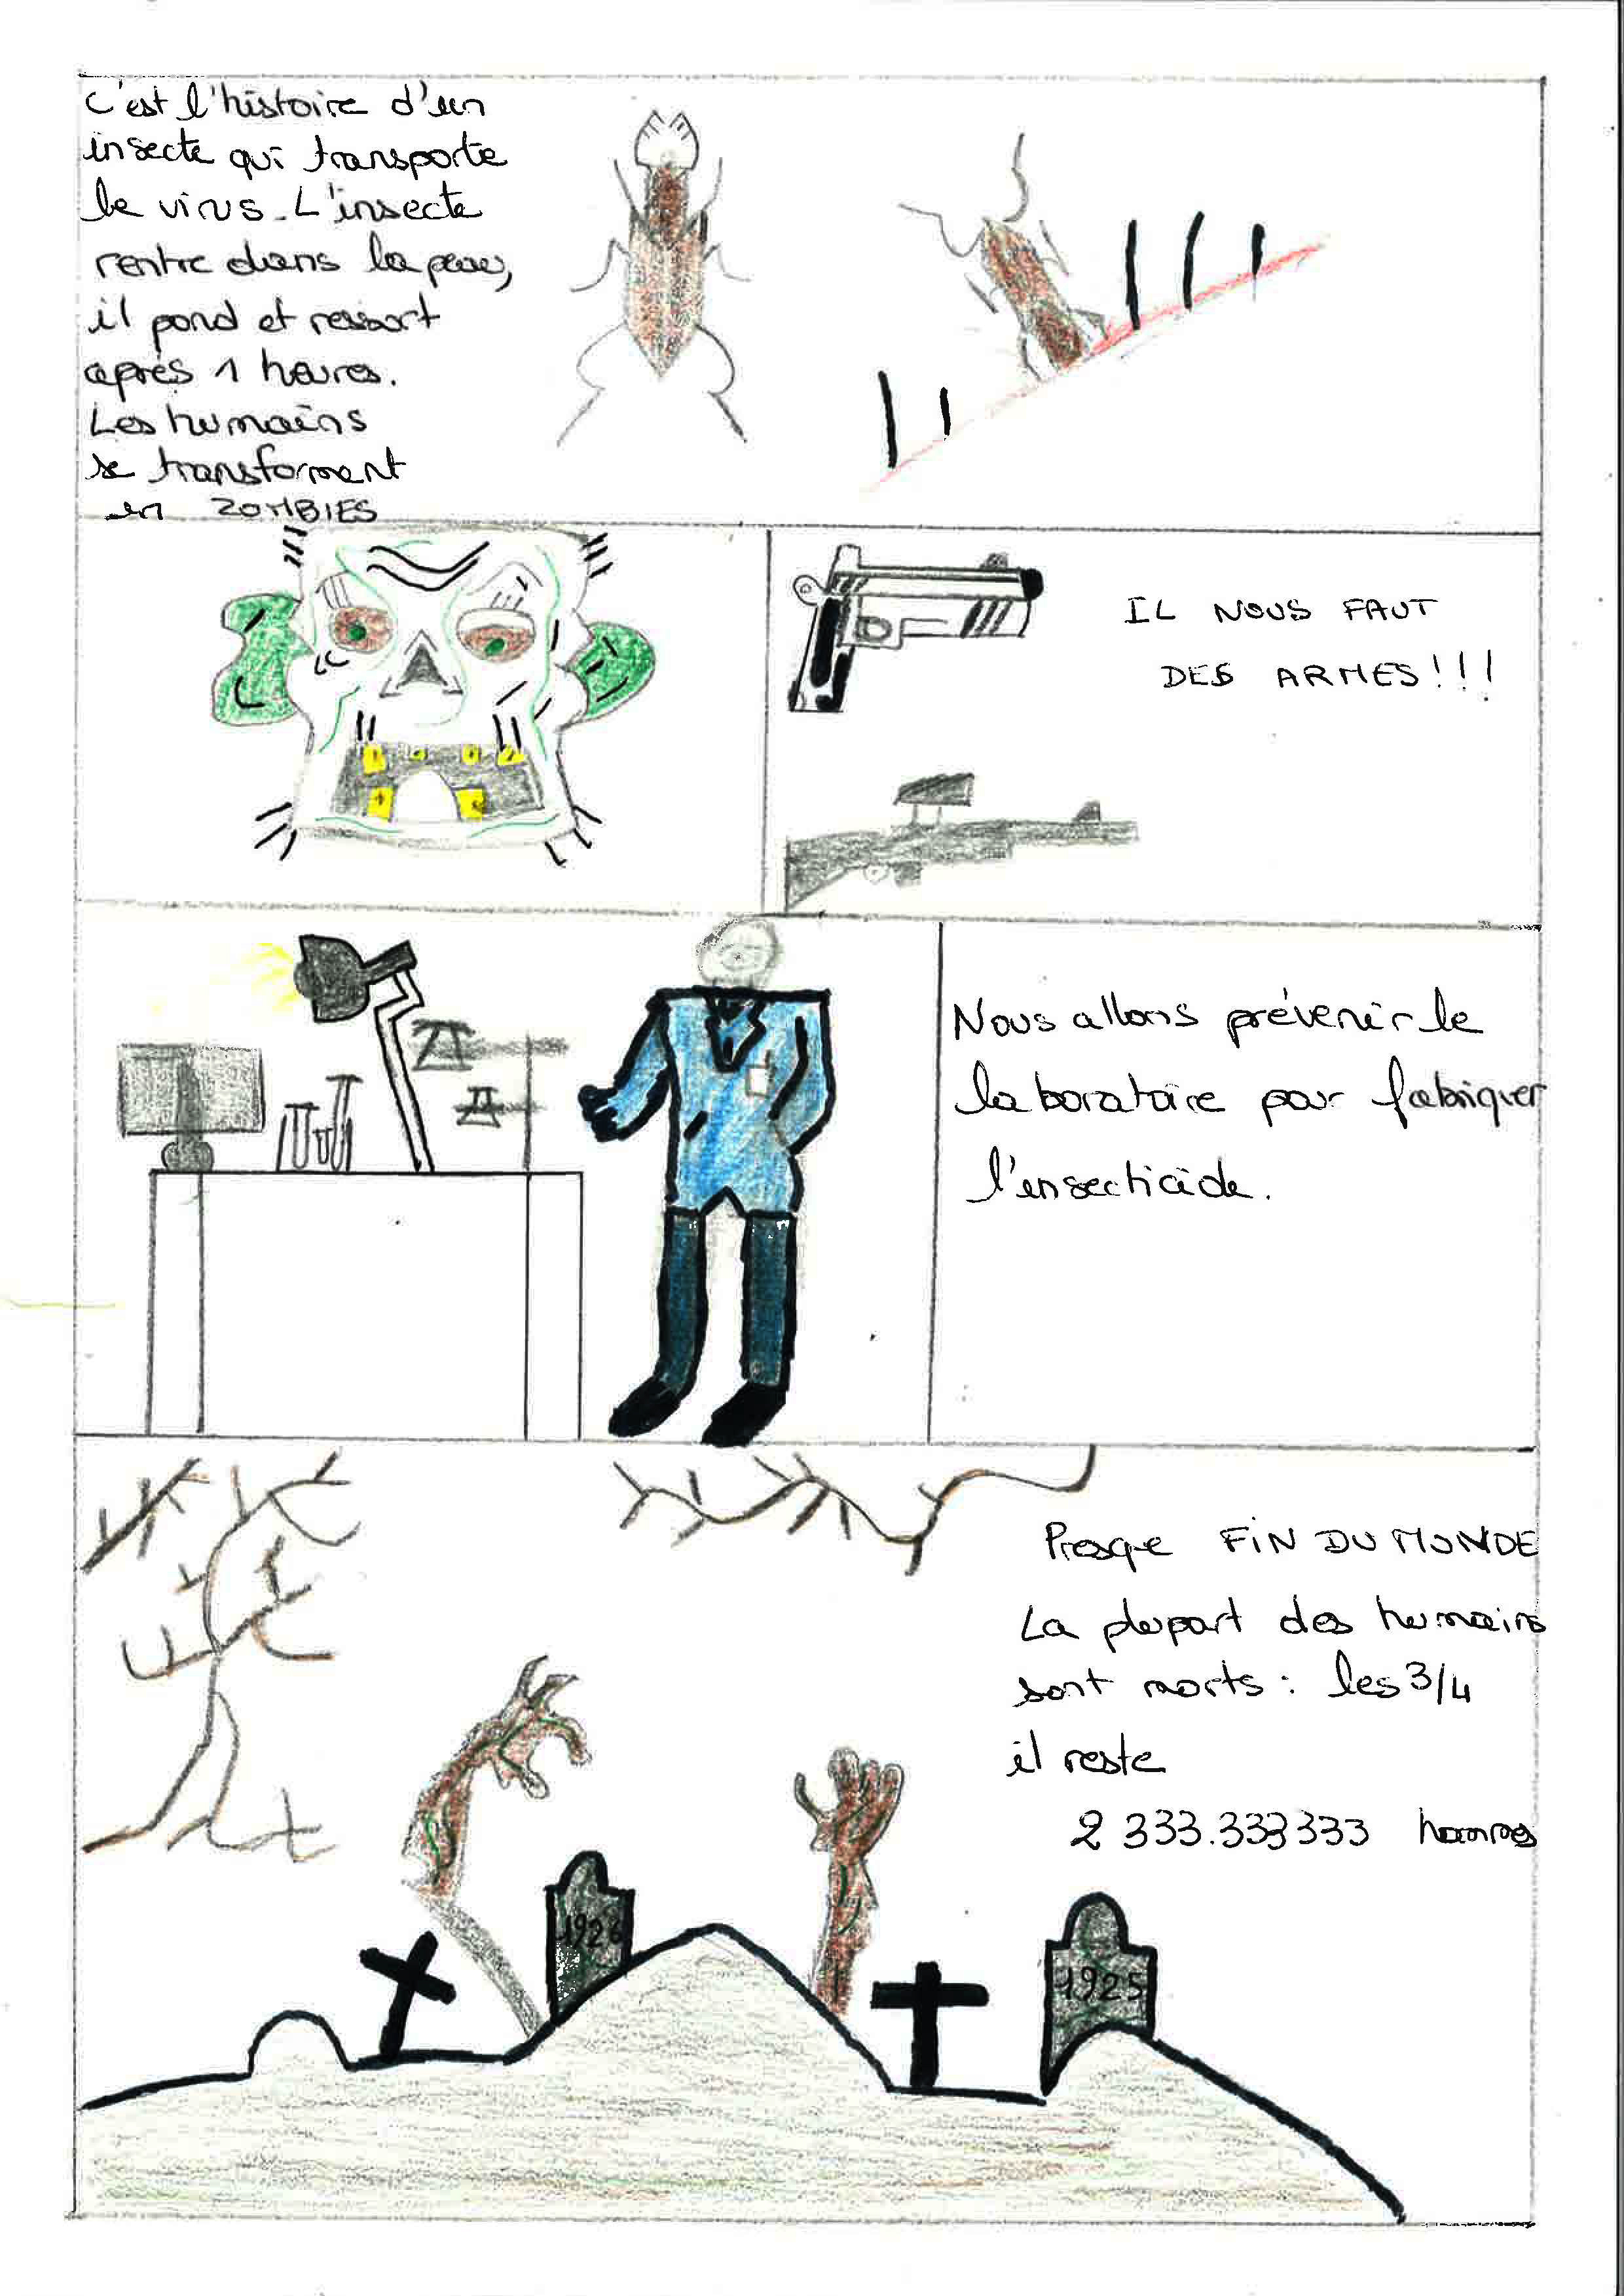 C'est l'histoire d'un
insecte qui transporte
le virus. L'insecte
rentre dans la peau,
il pond et ressort
après 1 heures.
Les humains
se transforment
en ZOMBIES
IL NOUS FAUT
DES ARMES!!!
Nous allons prévenir le
laboratoire pour fabriquer
l'ensecticide.
Presque FIN DU MONDE
La plupart des humains
sont morts : les 3/4
il reste
2 333.333333 hommes
1926
1925